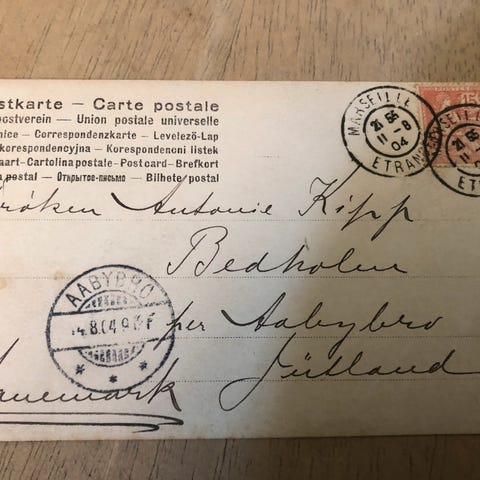 stkarte – Carte postale
ostverein – Union postale universelle
nice – Correspondenzkarte – Levelező-Lap
korespondencyjna – Korespondencni listek
aart - Cartolina postale - Post card - Brefkort
a postal – Открытое письмо – Bilhete postal
POSTES
15
MARSEILLE
11 -8
04
ETRAN
røken Antonie Kipp
Bedholm
AABYBRO
14.8.04
per Aabybro
anemark Jütland